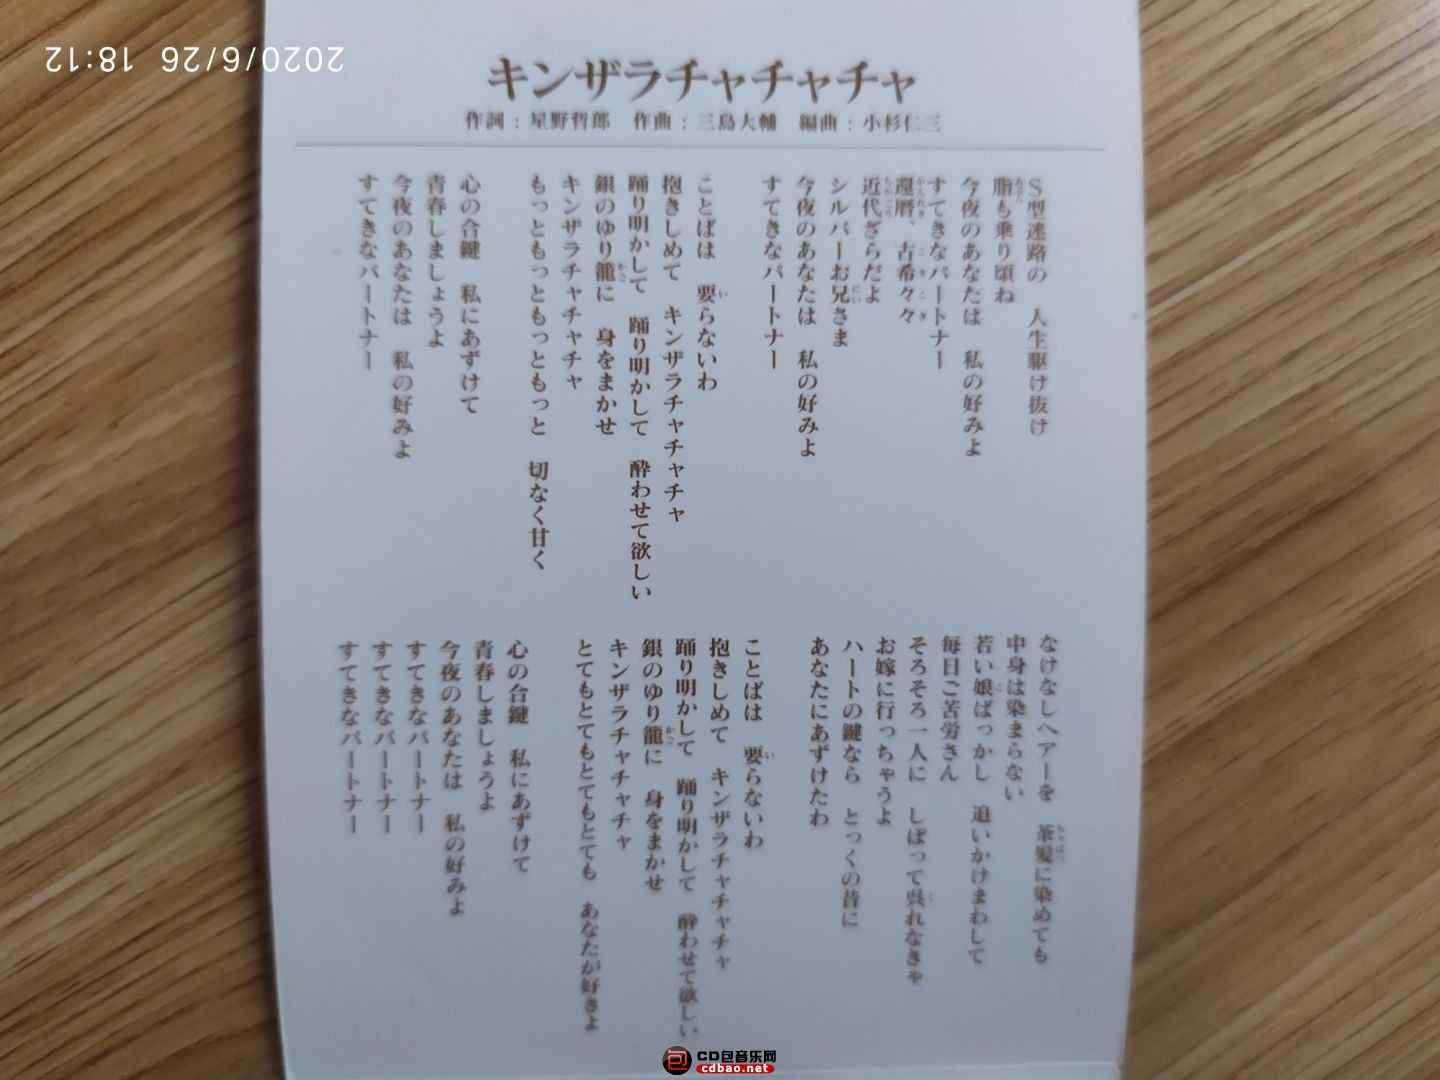 2020/6/26 18:12
キンザラチャチャチャ
作詞：星野哲郎 作曲：三島大輔 編曲：小杉仁三
S型迷路の 人生駆け抜け
脂も乗り頃ね
今夜のあなたは 私の好みよ
すてきなパートナー
還暦、古希々々
近代ぎらだよ
シルバーお兄さま
今夜のあなたは 私の好みよ
すてきなパートナー
ことばは 要らないわ
抱きしめて キンザラチャチャチャ
踊り明かして 踊り明かして 酔わせて欲しい
銀のゆり籠に 身をまかせ
キンザラチャチャチャ
もっともっともっともっと 切なく甘く
心の合鍵 私にあずけて
青春しましょうよ
今夜のあなたは 私の好みよ
すてきなパートナー
なけなしヘアーを 茶髪に染めても
中身は染まらない
若い娘ばっかし 追いかけまわして
毎日ご苦労さん
そろそろ一人に しぼって呉れなきゃ
お嫁に行っちゃうよ
ハートの鍵なら とっくの昔に
あなたにあずけたわ
ことばは 要らないわ
抱きしめて キンザラチャチャチャ
踊り明かして 踊り明かして 酔わせて欲しい
銀のゆり籠に 身をまかせ
キンザラチャチャチャ
とてもとてもとてもとても あなたが好きよ
心の合鍵 私にあずけて
青春しましょうよ
今夜のあなたは 私の好みよ
すてきなパートナー
すてきなパートナー
すてきなパートナー
CD包音乐网
cdbao.net